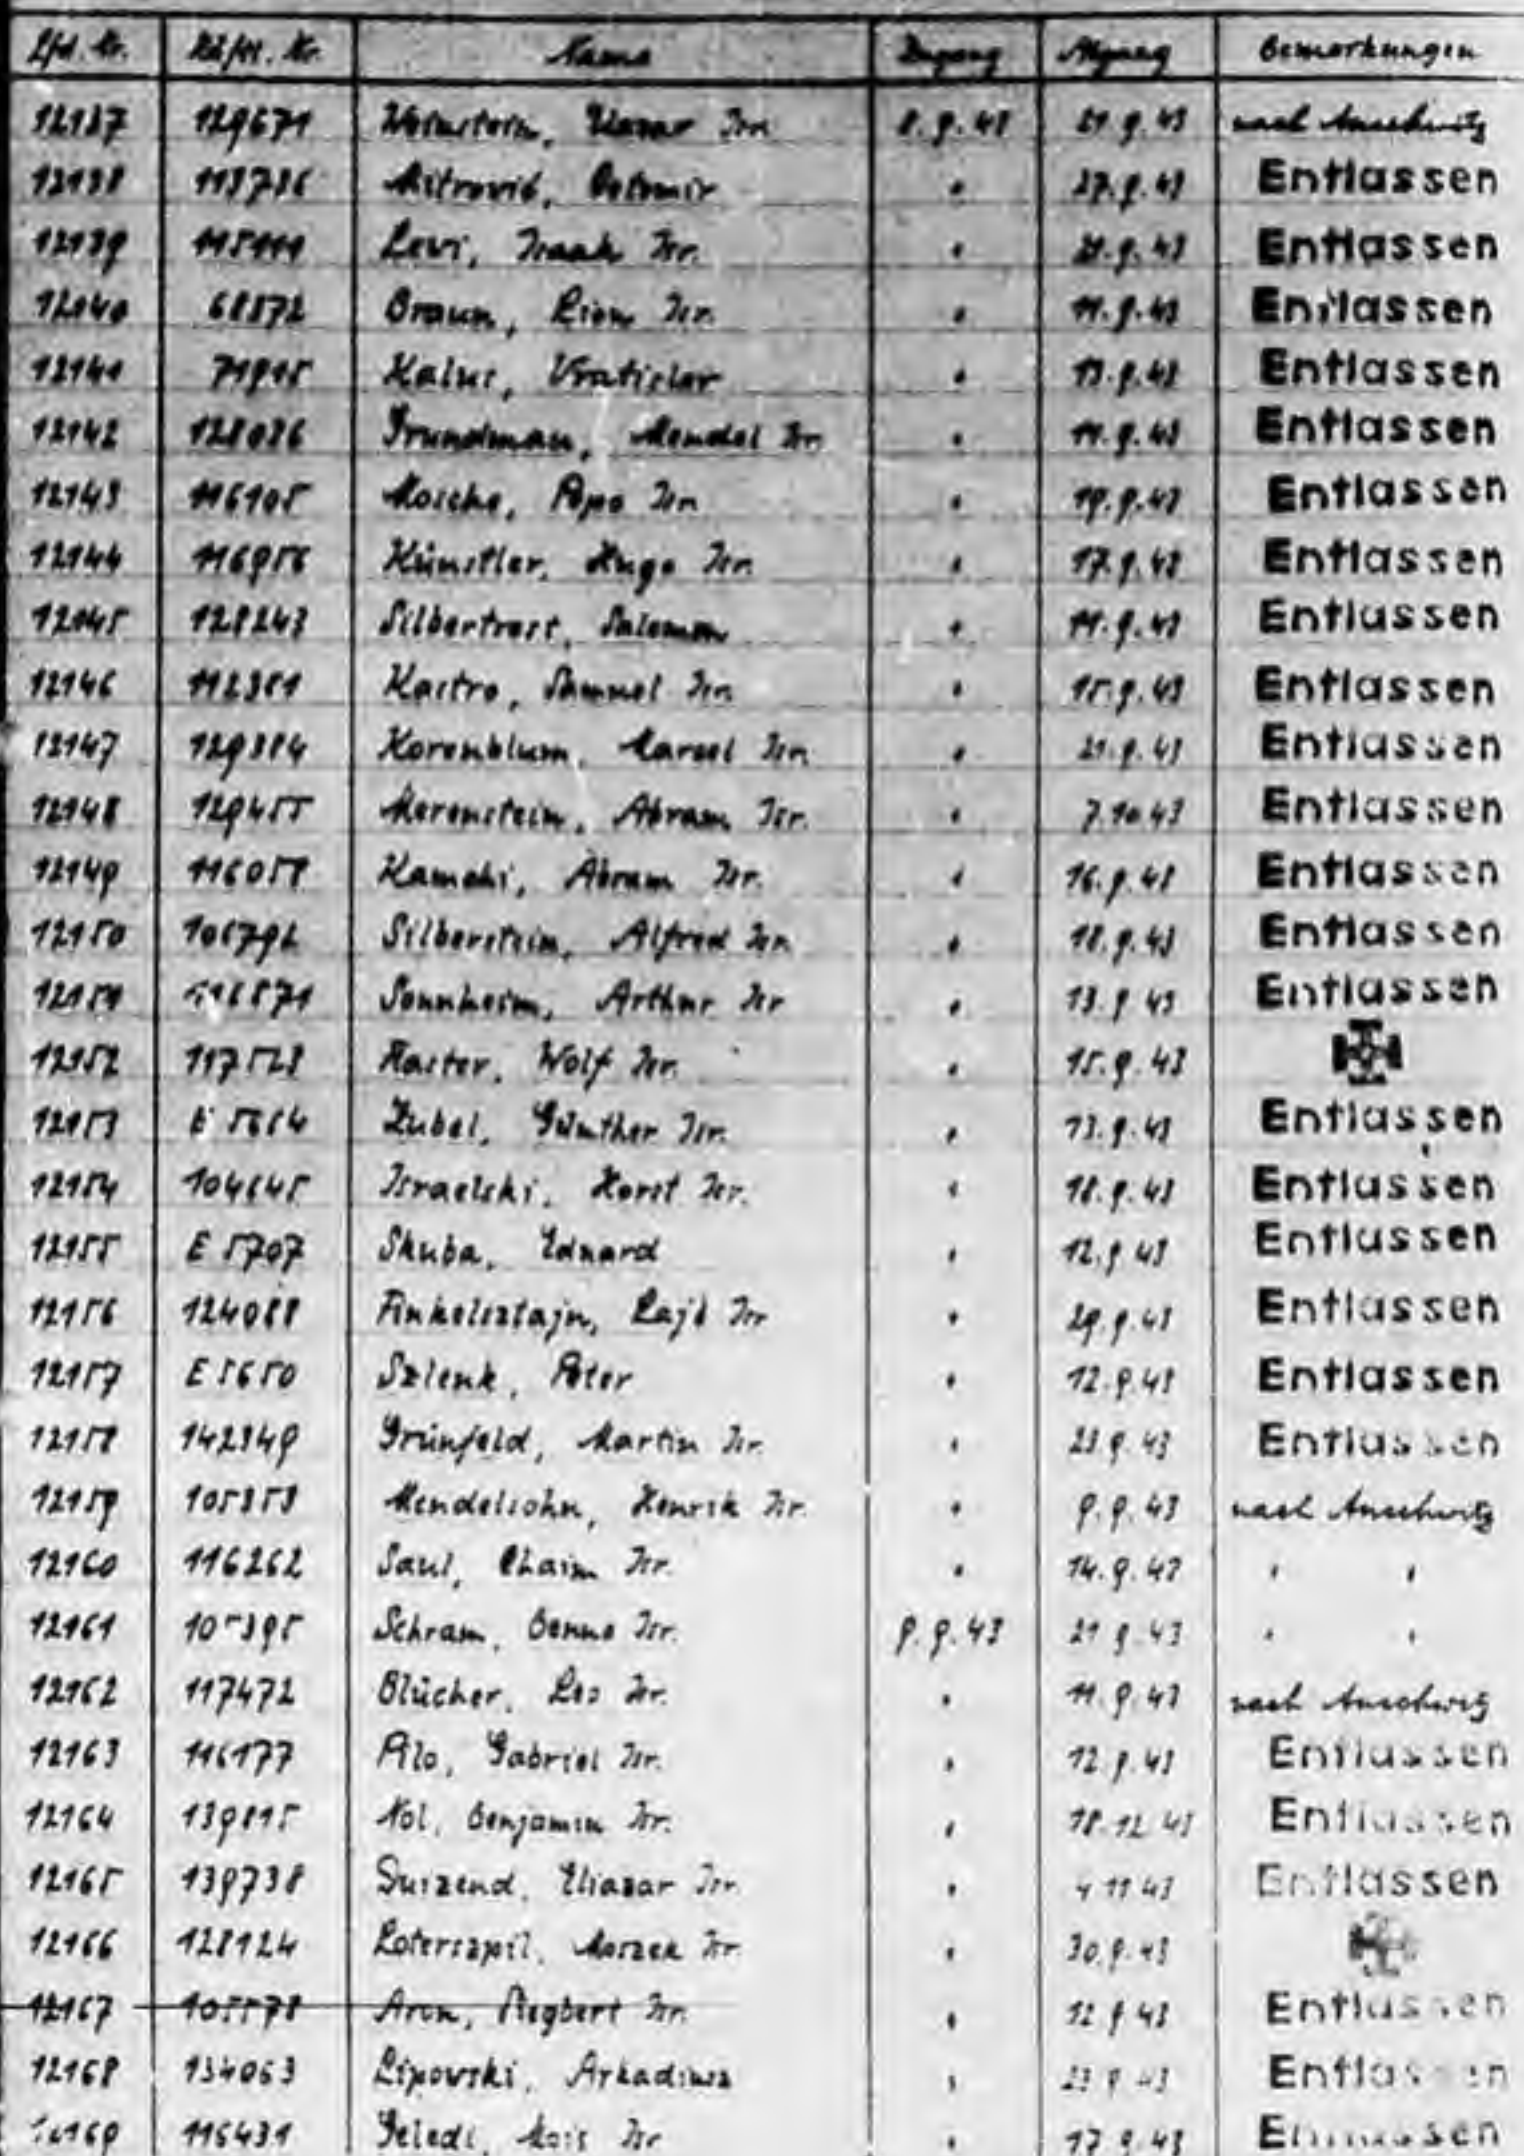 Lfd. Nr. Häftl. Nr. Name Zugang Abgang Bemerkungen
12137 129671 Weinstein, Elazar Isr. 8.9.43 21.9.43 nach Auschwitz
12138 113736 Mitrović, " 27.9.43 Entlassen
12139 115111 Levi, Isaak Isr. " 21.9.43 Entlassen
12140 68572 Braun, Lion Isr. " 11.9.43 Entlassen
12141 71915 Kalus, Vratislav " 13.9.43 Entlassen
12142 128086 Grundman, Mendel Isr. " 11.9.43 Entlassen
12143 116105 Mosche, Pepo Isr. " 19.9.43 Entlassen
12144 116956 Künstler, Hugo Isr. " 17.9.43 Entlassen
12145 128243 Silbertrost, Salomon " 11.9.43 Entlassen
12146 112381 Kastro, Samuel Isr. " 15.9.43 Entlassen
12147 129384 Korenblum, Marcel Isr. " 21.9.43 Entlassen
12148 129455 Merenstein, Abram Isr. " 7.10.43 Entlassen
12149 116058 Kamchi, Abram Isr. " 16.9.43 Entlassen
12150 106792 Silberstein, Alfred Isr. " 18.9.43 Entlassen
12151 Sonnheim, Arthur Isr " 13.9.43 Entlassen
12152 117528 Raster, Wolf Isr. " 15.9.43
12153 E 5654 Zubel, Günther Isr. " 13.9.43 Entlassen
12154 104645 Israelski, Horst Isr. " 18.9.43 Entlassen
12155 E 5707 Skuba, Eduard " 12.9.43 Entlassen
12156 124088 Finkelsztajn, Lajb Isr " 29.9.43 Entlassen
12157 E 5650 Szlenk, Peter " 12.9.43 Entlassen
12158 142349 Grünfeld, Martin Isr. " 23.9.43 Entlassen
12159 105353 Mendelsohn, Henrik Isr. " 9.9.43 nach Auschwitz
12160 116262 Saul, Chaim Isr. " 14.9.43 " "
12161 Schram, Benno Isr. 9.9.43 21.9.43 " "
12162 117472 Blücher, Leo Isr. " 11.9.43 nach Auschwitz
12163 116177 Pilo, Gabriel Isr. " 12.9.43 Entlassen
12164 139815 Nol, Benjamin Isr. " 18.12.43 Entlassen
12165 139738 Suizend, Eliazar Isr. " 4.11.43 Entlassen
12166 128124 Loterszpil, Moszek Isr. " 30.9.43
12167 105578 Aron, Siegbert Isr. " 12.9.43 Entlassen
12168 134063 Lipovski, " 23.9.43 Entlassen
12169 116431 Geledi, Mois Isr " 17.9.43 Entlassen